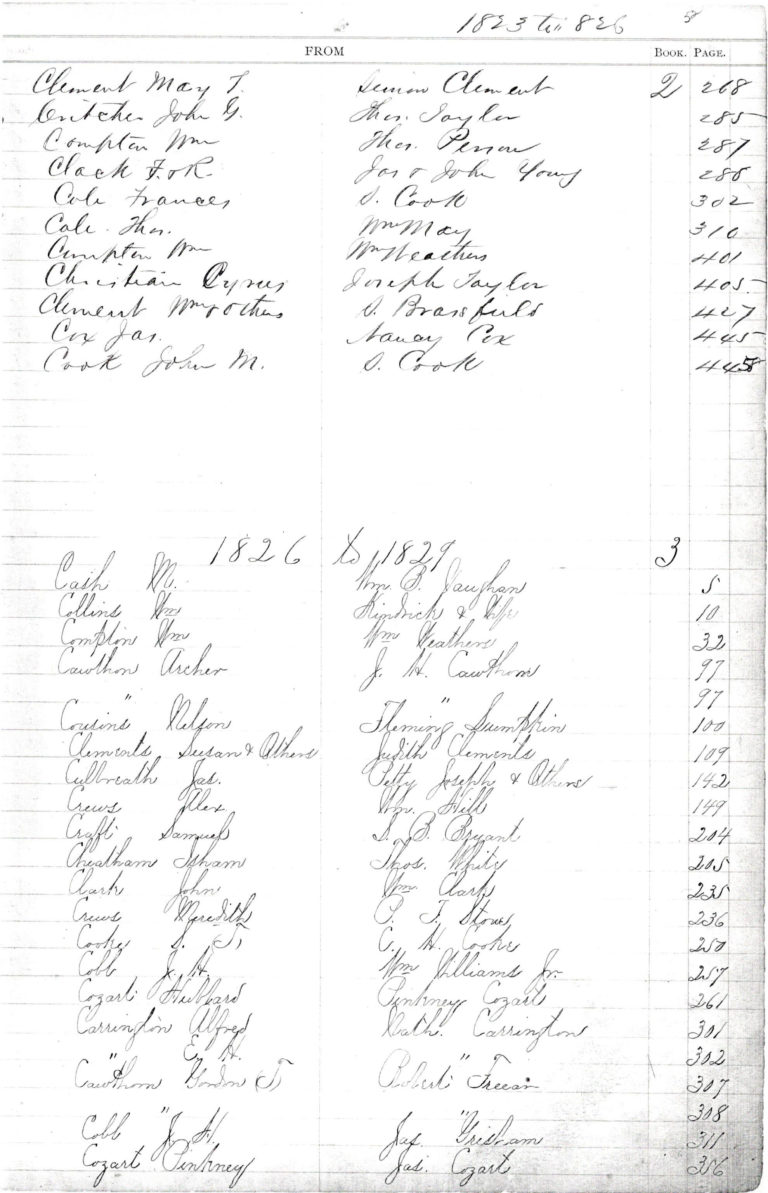 1823 to 1826
FROM BOOK. PAGE.
Clement May T. Simon Clement 2 268
Critcher John G. Thos. Taylor 285
Compton Wm Thos. Person 287
Clack F. & R. Jas & John Young 286
Cole Frances D. Cook 302
Cole Thos. Wm May 310
Compton Wm Wm Weathers 401
Christian Cyrus Joseph Taylor 405
Clement Wm & others D. Brassfield 427
Cox Jas. Nancy Cox 445
Cook John M. D. Cook 4458
1826 to 1829 3
Cash M. Wm. B. Vaughan 5
Collins Wm Kindrick & Wife 10
Compton Wm Wm Weathers 32
Cawthon Archer J. H. Cawthorn 97
" " 97
Cousins Nelson Fleming Lumpkin 100
Clements Susan & Others Judith Clements 109
Culbreath Jas. Petty Joseph & Others 142
Crews Alex Wm. Hill 149
Craft Samuel D. B. Bryant 204
Cheatham Isham Thos. White 205
Clark John Wm Clark 235
Crews Meredith P. T. Stone 236
Cooke D. T. C. H. Cooke 250
Cobb J. H. Wm Williams Jr. 257
Cozart Hubbard Pinkney Cozart 261
Carrington Alfred Nath. Carrington 301
" E. H. " 302
Cawthorn Gordon T. Robert 307
" " 308
Cobb J. H. Jas. Grisham 311
Cozart Pinkney Jas. Cozart 356